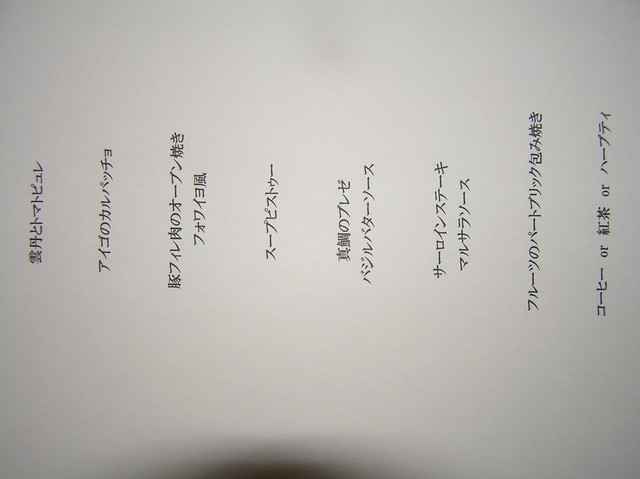 雲丹とトマトピュレ
アイゴのカルパッチョ
豚フィレ肉のオーブン焼き
フォワイヨ風
スープピストゥー
真鯛のブレゼ
バジルバターソース
サーロインステーキ
マルサラソース
フルーツのパートブリック包み焼き
コーヒー or 紅茶 or ハーブティ